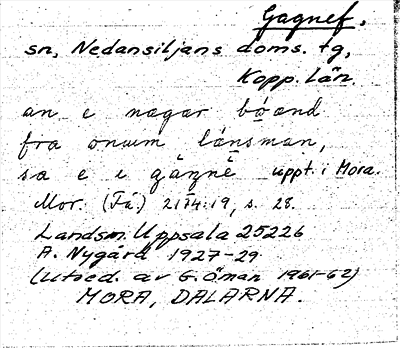 Gagnef.
sn, Nedansiljans doms. tg,
Kopp. län.
an e nagar båand
fra onum länsman,
sa e e gágnè uppt. i Mora.
Mor. (Få.) 21 :19, s. 28.
Landsm. Uppsala 25226
A. Nygård 1927-29
(Utred. av G. Öman 1961-62)
MORA, DALARNA.